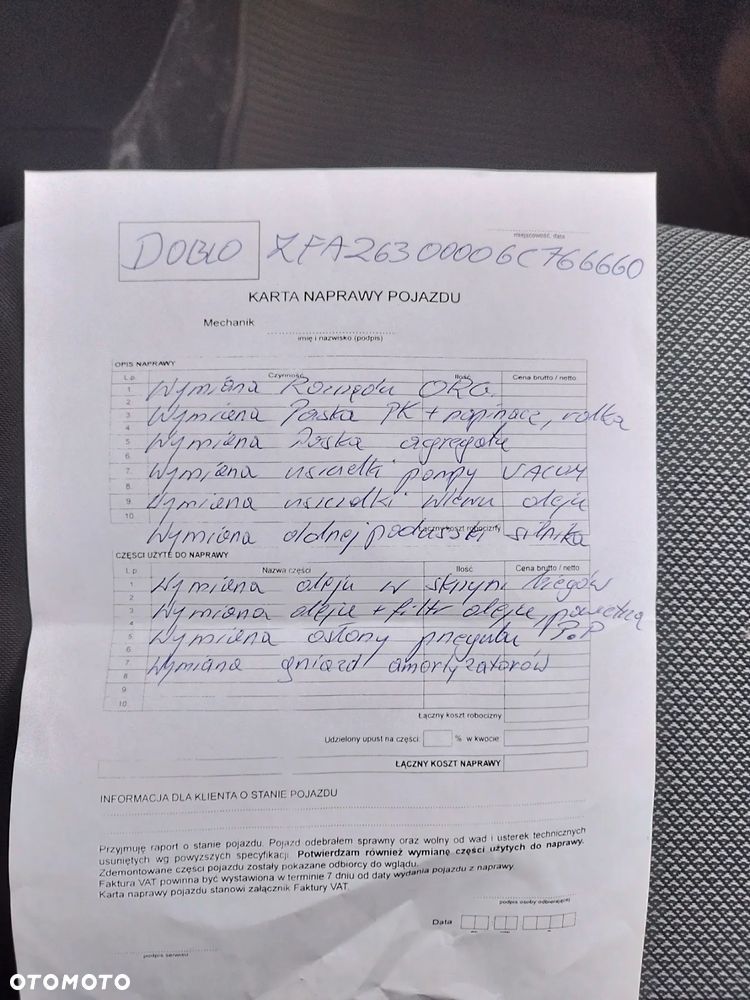 miejscowość, data
DOBLO ZFA26300006C766660
KARTA NAPRAWY POJAZDU
Mechanik
imię i nazwisko (podpis)
OPIS NAPRAWY
L.p. Czynność Ilość Cena brutto / netto
1 Wymiana Rozrządu ORG.
2
3 Wymiana Paska PK + napinacz, rolka
4
5 Wymiana Paska agregatu
6
7. Wymiana uszczelki pompy VACUM
8.
9. Wymiana uszczelki wlewu oleju
10.
Łączny koszt robocizny
Wymiana dolnej poduszki silnika
CZĘŚCI UŻYTE DO NAPRAWY
L.p Nazwa części Ilość Cena brutto / netto
1 Wymiana oleju w skrzyni biegów
2
3 Wymiana oleju + filtr oleju, powietrza
4
5 Wymiana osłony przegubu P.P
6
7 Wymiana gniazd amortyzatorów
8
9
10.
Łączny koszt robocizny
Udzielony upust na części: % w kwocie
ŁĄCZNY KOSZT NAPRAWY
INFORMACJA DLA KLIENTA O STANIE POJAZDU
Przyjmuję raport o stanie pojazdu. Pojazd odebrałem sprawny oraz wolny od wad i usterek technicznych
usuniętych wg powyższych specyfikacji. Potwierdzam również wymianę części użytych do naprawy.
Zdemontowane części pojazdu zostały pokazane odbiorcy do wglądu.
Faktura VAT powinna być wystawiona w terminie 7 dniu od daty wydania pojazdu z naprawy.
Karta naprawy pojazdu stanowi załącznik Faktury VAT
podpis osoby odbierającej
Data
podpis serwisu
OTOMOTO